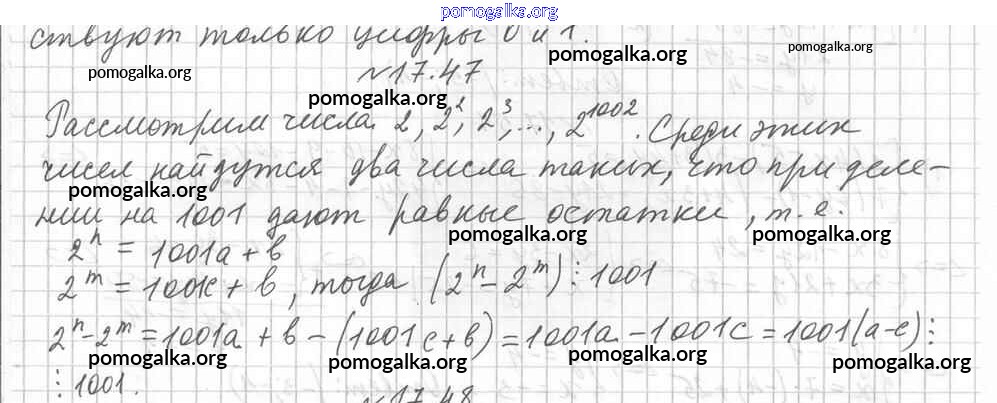 pomogalka.org
ствуют только цифры 0 и 1.
pomogalka.org
pomogalka.org
pomogalka.org
№17.47
pomogalka.org
Рассмотрим числа 2, 2², 2³, ..., 2¹⁰⁰². Среди этих
чисел найдутся два числа таких, что при деле-
pomogalka.org
нии на 1001 дают равные остатки, т. е.
pomogalka.org
pomogalka.org
2ⁿ = 1001a + b
2ᵐ = 1001c + b, тогда (2ⁿ - 2ᵐ) ⋮ 1001
2ⁿ - 2ᵐ = 1001a + b - (1001c + b) = 1001a - 1001c = 1001(a - c) ⋮
pomogalka.org
pomogalka.org
pomogalka.org
pomogalka.org
⋮ 1001.
№17.48